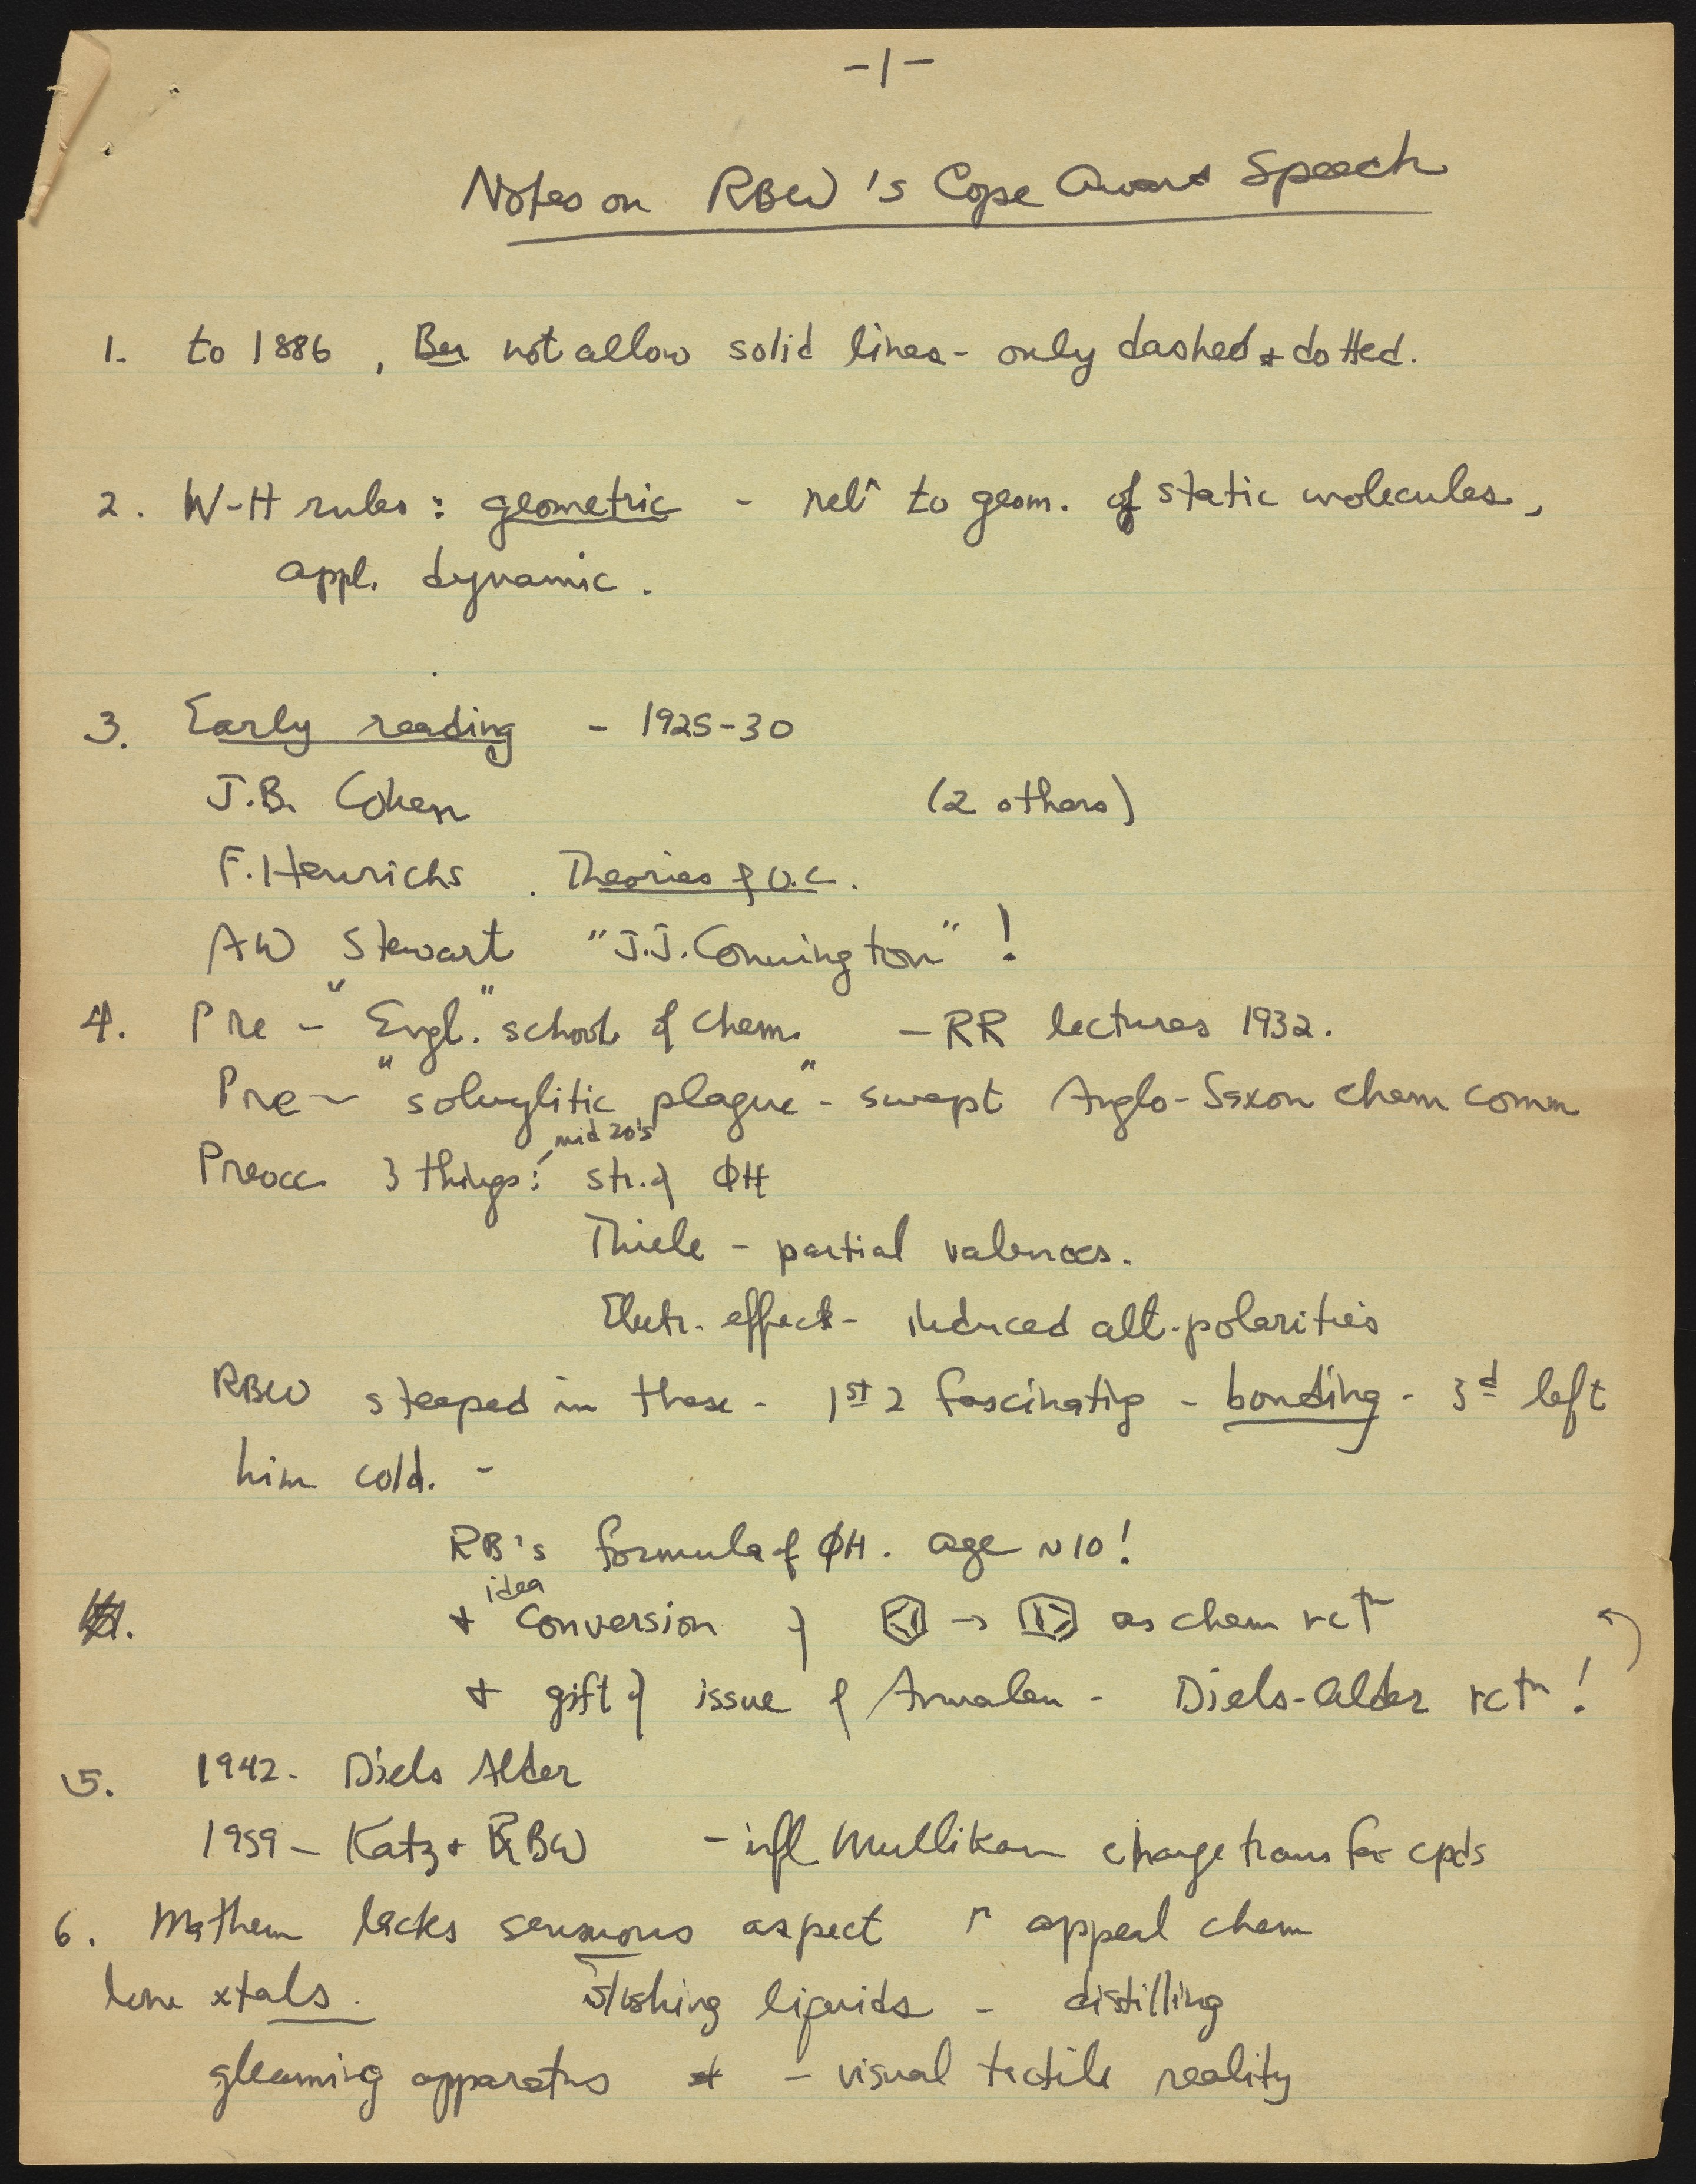 -1-
Notes on RBW's Cope Award Speech
1. to 1886, Ber not allow solid lines - only dashed & dotted.
2. W-H rules: geometric - rel^ to geom. of static molecules,
appl. dynamic.
3. Early reading - 1925-30
J.B. Cohen (2 others)
F. Henrichs. Theories of O.C.
AW Stewart "J.J. Connington" !
4. Pre - "Engl." school of chem. - RR lectures 1932.
Pre - "solvylitic plague" - swept Anglo-Saxon chem comm
mid 20's
Preocc 3 things: str. of ΦH
Thiele - partial valences.
Electr. effects - induced alt. polarities
RBW steeped in these - 1st 2 fascinatig - bonding - 3d left
him cold. -
RB's formula of ΦH. age ~10!
idea
+ Conversion of → as chem rctn
+ gift of issue of Annalen - Diels-Alder rctn!
5. 1942- Diels Alder
1959 - Katz + RBW - infl Mullikan charge transfer cpds
6. Mathem lacks sensuous aspect appeal chem
love xtals. sloshing liquids - distilling
gleaming apparatus - visual tactile reality